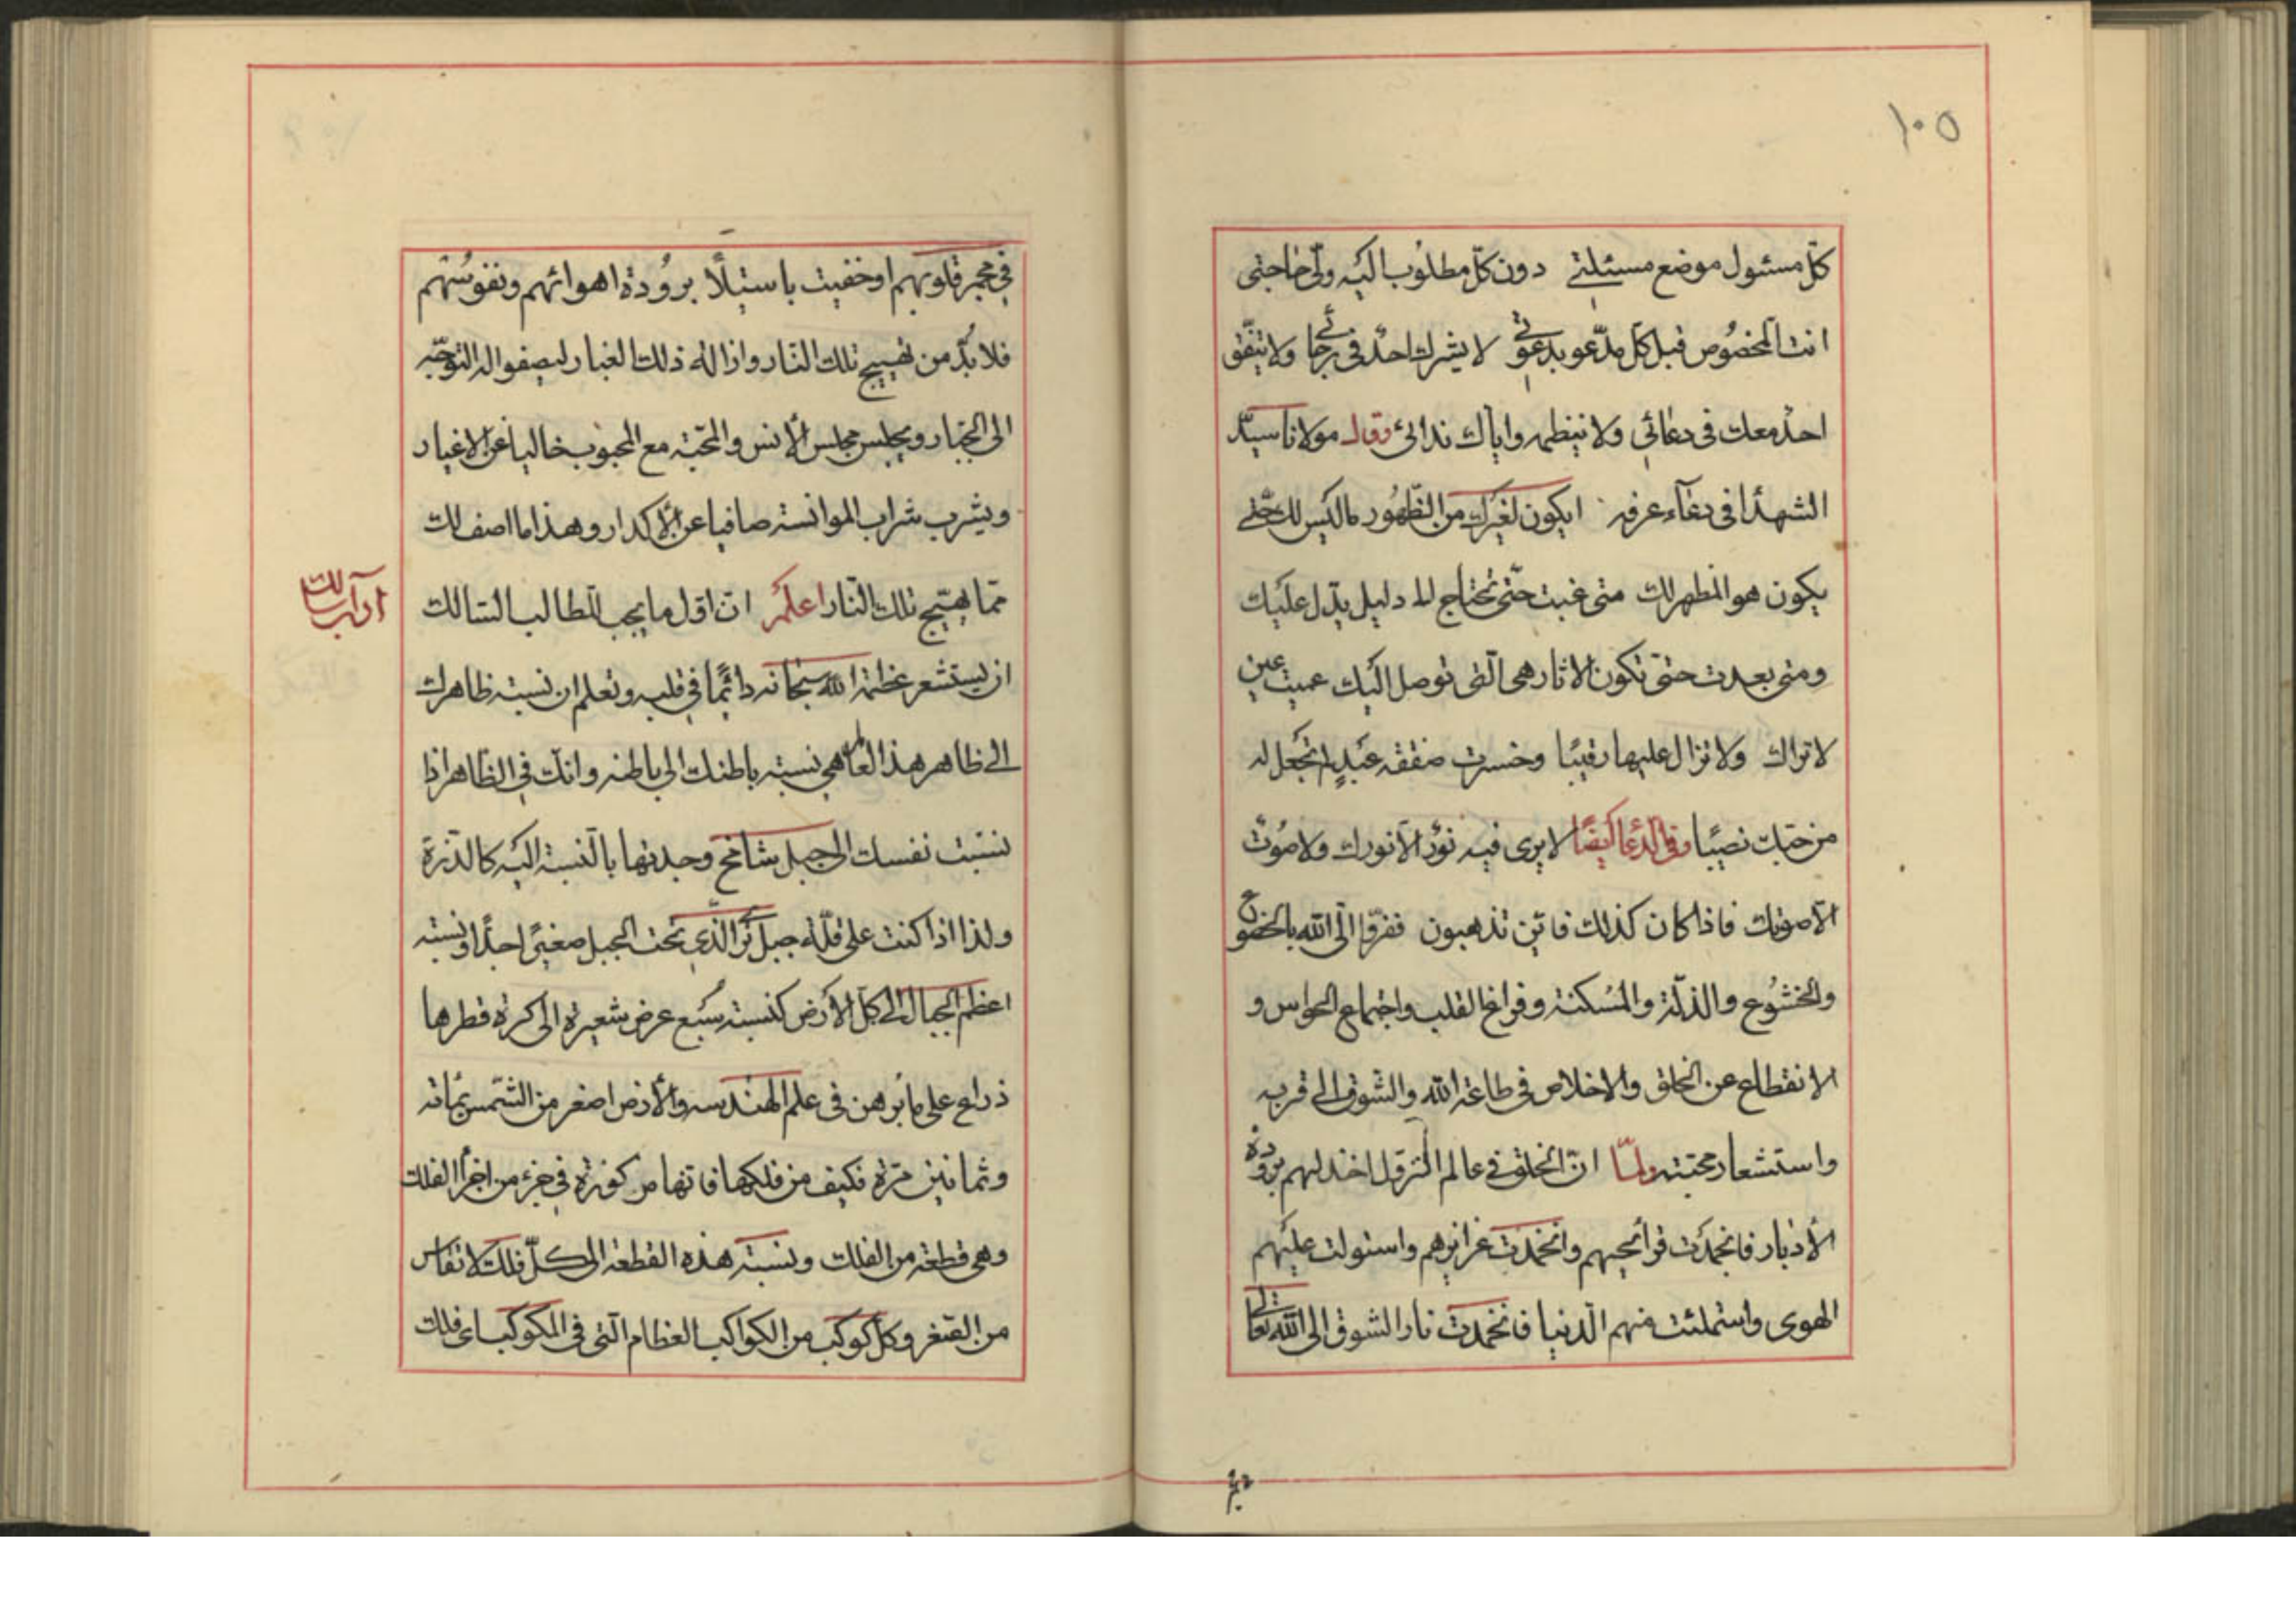 ١٠٥
كلّ مسئول موضع مسئلتي دون كلّ مطلوب اليه وليّ حاجتي
انت المخصوص قبل كلّ مدعوّ بدعوتي لا يشركك احد في رجائي ولا يتفق
احد معك في دعائي ولا ينظمه واياك ندائي وقال مولانا سيد
الشهدأ في دعآء عرفه ايكون لغيرك من الظهور ما ليس لك حتّى
يكون هو المظهر لك متى غبت حتّى تحتاج الى دليل يدّل عليك
ومتى بعدت حتّى تكون الاثار هي الّتى توصل اليك عميت عين
لا تراك ولا تزال عليها رقيبًا وخسرت صفقه عبدٍ لم تجعل له
من حبّك نصيبًا وفي الدعا ايضًا لا يرى فيه نورٌ الا نورك ولا صوتٌ
الا صوتك فاذا كان كذلك فاين تذهبون ففرّوا الى الله بالخضوع
والخشوع والذلّة والمسكنة وفراغ القلب واجتماع الحواس و
الانقطاع عن الخلق والاخلاص في طاعة الله والشوق الى قربه
واستشعار محبته ولمّا انّ الخلق في عالم التنزل اخذ لهم برودة
الأدبار فانجمدت قرائحهم وانخمدت غرائزهم واستولت عليهم
الهوى واستملئت منهم الدنيا فانخمدت نار الشوق الى الله تعالى
في مجمر قلوبهم او خفيت باستيلأ برودة اهوائهم ونفوسهم
فلا بدّ من تهييج تلك النار وازالة ذلك الغبار ليصفو له التوجّه
الى الجبار ويجلس مجلس الأنس والمحبّة مع المحبوب خاليا عن الاغيار
ويشرب شراب الموانسة صافيا عن الأكدار وهذا ما اصف لك
ممّا يهيّج تلك النار اعلم ان اوّل ما يجب للطالب السالك
آداب سالك
ان يستشعر عظمة الله سبحانه دائمًا في قلبه وتعلم ان نسبة ظاهرك
الى ظاهر هذا العالم هي نسبة باطنك الى باطنه وانك في الظاهر اذا
نسبت نفسك الى جبل شامخ وجدتها بالنسبة اليه كالذرة
ولذا اذا كنت على قلّة جبل ترى الذي تحت الجبل صغيرًا جدًا ونسبة
اعظم الجبال الى كل الأرض كنسبة سبع عرض شعيرة الى كرة قطرها
ذراع على ما برهن في علم الهندسه والأرض اصغر من الشمس بمأته
وثمانين مرّة فكيف من فلكها فانها مركوزة في جزء من اجزأ الفلك
وهي قطعة من الفلك ونسبة هذه القطعة الى كلّ فلك لا تقاس
من الصغر وكل كوكب من الكواكب العظام الّتى في المكوكب اى فلك